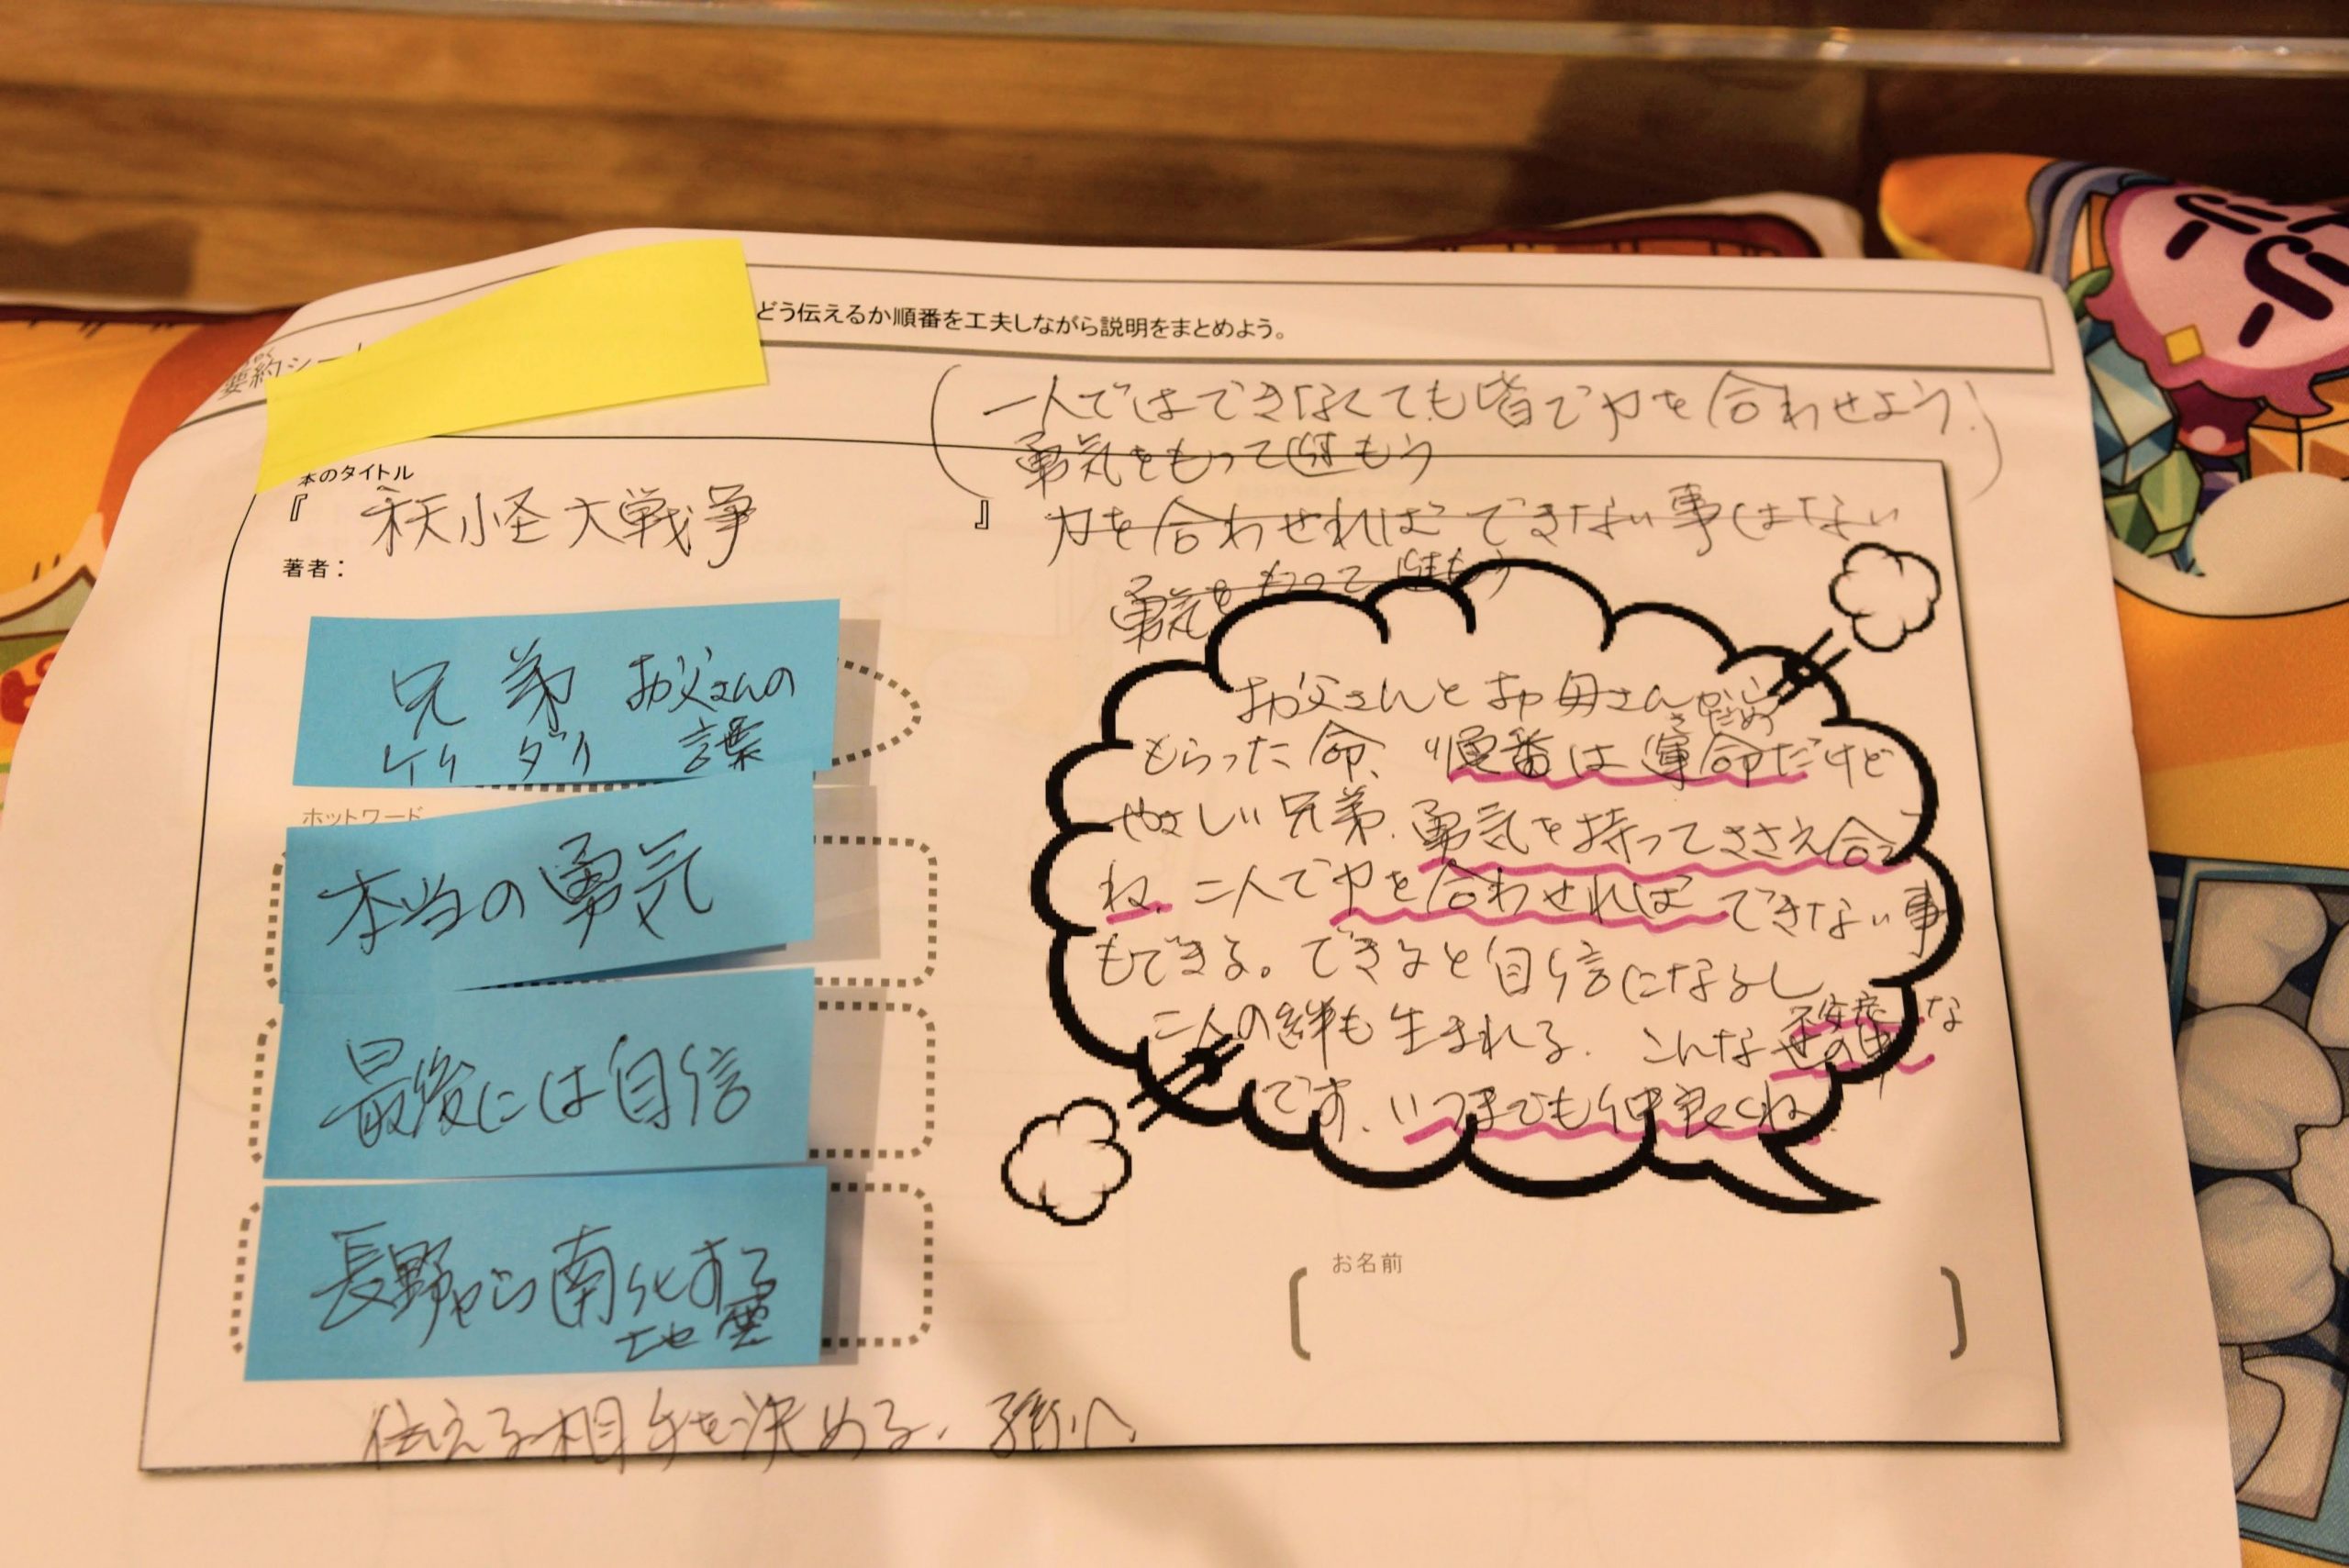 どう伝えるか順番を工夫しながら説明をまとめよう。
要約シート
一人ではできなくても皆で力を合わせよう
勇気をもって進もう
本のタイトル
『 妖怪大戦争 』
力を合わせればできない事はない
著者：
勇気をもって進もう
兄弟 お父さんの
言葉
ホットワード
本当の勇気
最後には自信
長野から南化する
地震
お父さんとお母さんから
さだめ
もらった命、順番は運命だけど
やさしい兄弟、勇気を持ってささえ合って
ね、二人で力を合わせれば できない事
もできる。できると自信になるし
二人の絆も生まれる、こんな 不安定な
世の中
です、いつまでも仲良くね
お名前
伝える相手を決める、孫へ